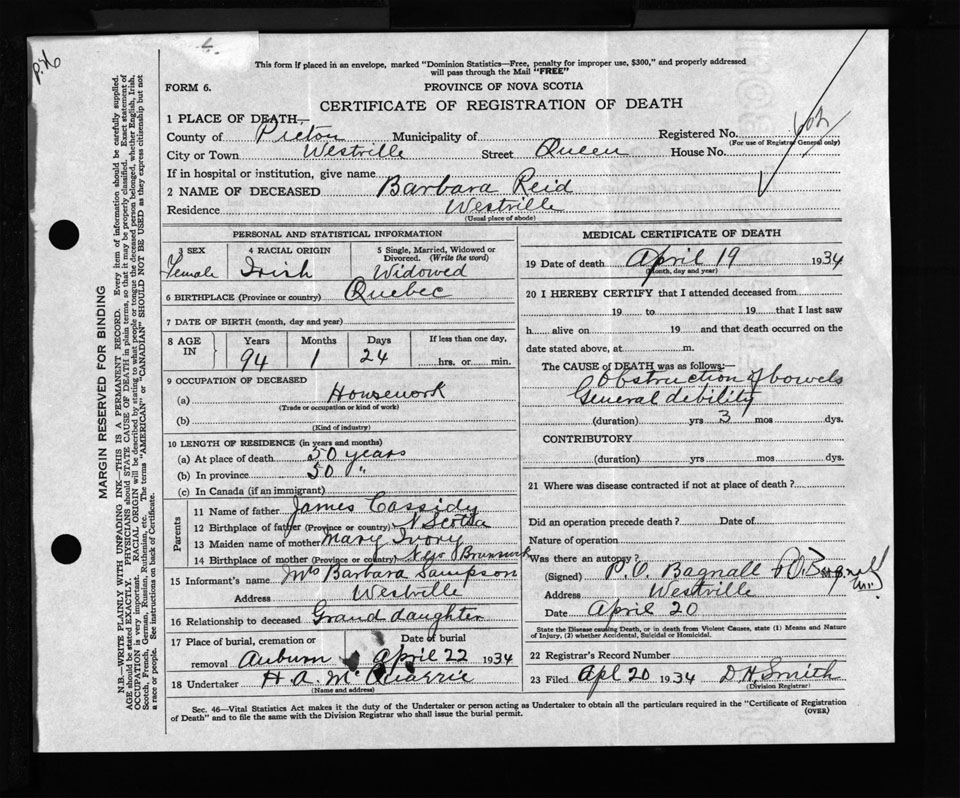 P.N.
This form if placed in an envelope, marked "Dominion Statistics—Free, penalty for improper use, $300," and properly addressed
will pass through the Mail "FREE"
FORM 6.
PROVINCE OF NOVA SCOTIA
CERTIFICATE OF REGISTRATION OF DEATH
1 PLACE OF DEATH—
County of Pictou Municipality of Registered No.
(For use of Registrar General only)
City or Town Westville Street Queen House No.
If in hospital or institution, give name
2 NAME OF DECEASED Barbara Reid
Residence Westville
(Usual place of abode)
PERSONAL AND STATISTICAL INFORMATION
3 SEX 4 RACIAL ORIGIN 5 Single, Married, Widowed or
Divorced. (Write the word)
Female Irish Widowed
6 BIRTHPLACE (Province or country) Quebec
7 DATE OF BIRTH (month, day and year)
8 AGE IN Years Months Days If less than one day,
94 1 24 hrs. or min.
9 OCCUPATION OF DECEASED
(a) Housework
(Trade or occupation or kind of work)
(b)
(Kind of industry)
10 LENGTH OF RESIDENCE (in years and months)
(a) At place of death 50 years
(b) In province 50 "
(c) In Canada (if an immigrant)
Parents
11 Name of father James Cassidy
12 Birthplace of father (Province or country) N Scotia
13 Maiden name of mother Mary Ivory
14 Birthplace of mother (Province or country) New Brunswick
15 Informant's name Mrs Barbara Sampson
Address Westville
16 Relationship to deceased Grand daughter
17 Place of burial, cremation or Date of burial
removal Auburn April 22 1934
18 Undertaker H A McQuarrie
(Name and address)
MEDICAL CERTIFICATE OF DEATH
19 Date of death April 19 1934
(Month, day and year)
20 I HEREBY CERTIFY that I attended deceased from
19 to 19 that I last saw
h alive on 19 and that death occurred on the
date stated above, at m.
The CAUSE OF DEATH was as follows:—
Obstruction of bowels
General debility
(duration) yrs 3 mos dys.
CONTRIBUTORY
(duration) yrs mos dys.
21 Where was disease contracted if not at place of death?
Did an operation precede death? Date of
Nature of operation
Was there an autopsy?
(Signed) R. O. Bagnall
Address Westville
Date April 20
State the Disease causing Death, or in death from Violent Causes, state (1) Means and Nature
of Injury, (2) whether Accidental, Suicidal or Homicidal.
22 Registrar's Record Number
23 Filed Apl 20 1934 D. H. Smith
(Division Registrar)
Sec. 46—Vital Statistics Act makes it the duty of the Undertaker or person acting as Undertaker to obtain all the particulars required in the "Certificate of Registration
of Death" and to file the same with the Division Registrar who shall issue the burial permit.
(OVER)
MARGIN RESERVED FOR BINDING
N.B.—WRITE PLAINLY WITH UNFADING INK—THIS IS A PERMANENT RECORD. Every item of information should be carefully supplied.
AGE should be stated EXACTLY. PHYSICIANS should STATE CAUSE OF DEATH in plain terms, so that it may be properly classified. Exact statement of
OCCUPATION is very important. RACIAL ORIGIN will be described by stating to what people or tongue the deceased person belonged, whether English, Irish,
Scotch, French, German, Russian, Ruthenian, etc. The terms "AMERICAN" or "CANADIAN" SHOULD NOT BE USED as they express citizenship but not
a race or people. See instructions on back of Certificate.